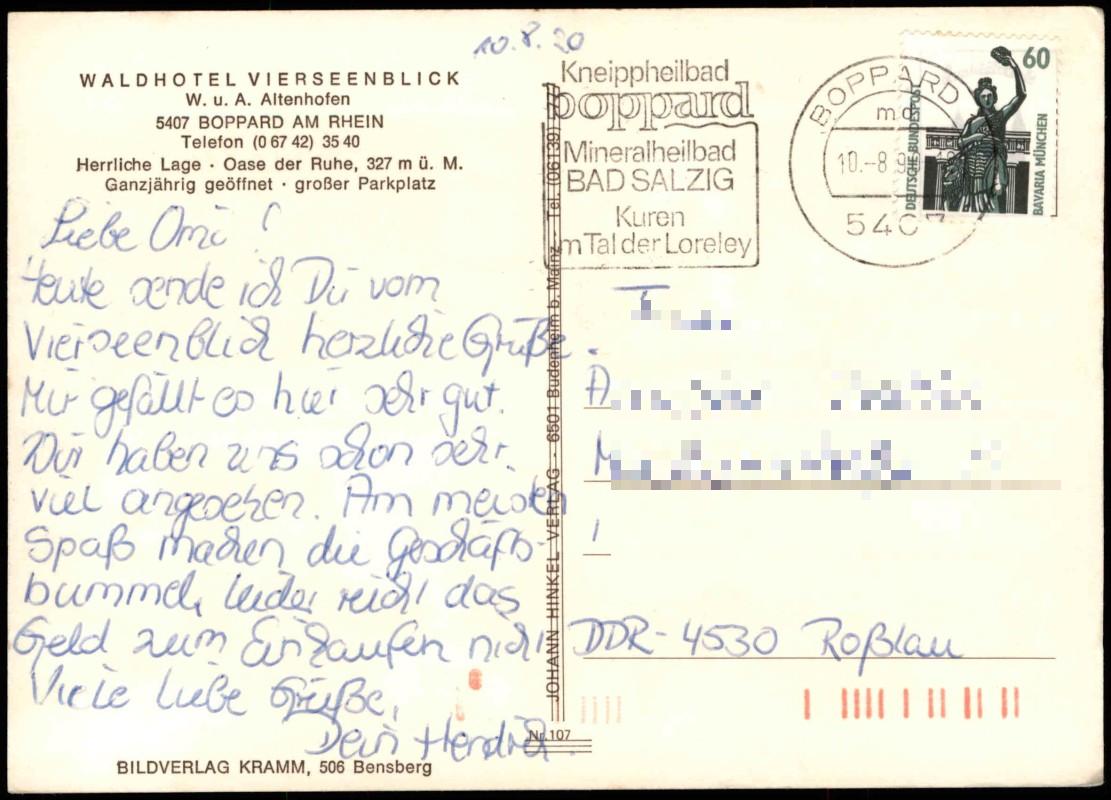 10.8.90
WALDHOTEL VIERSEENBLICK
W. u. A. Altenhofen
5407 BOPPARD AM RHEIN
Telefon (0 67 42) 35 40
Herrliche Lage · Oase der Ruhe, 327 m ü. M.
Ganzjährig geöffnet · großer Parkplatz
Liebe Omi!
Heute sende ich Dir vom
Vierseenblick herzliche Grüße.
Mir gefällt es hier sehr gut.
Wir haben uns schon sehr
viel angesehen. Am meisten
Spaß machen die Geschäfts-
bummel, leider reicht das
Geld zum Einkaufen nicht
Viele liebe Grüße,
Dein Hendrik.
BILDVERLAG KRAMM, 506 Bensberg
JOHANN HINKEL VERLAG · 6501 Budenheim b. Mainz · Tel. (06139)
Nr. 107
Kneippheilbad
boppard
Mineralheilbad
BAD SALZIG
Kuren
im Tal der Loreley
BOPPARD
10.-8.9
5407
60
DEUTSCHE BUNDESPOST
BAVARIA MÜNCHEN
DDR-4530 Roßlau